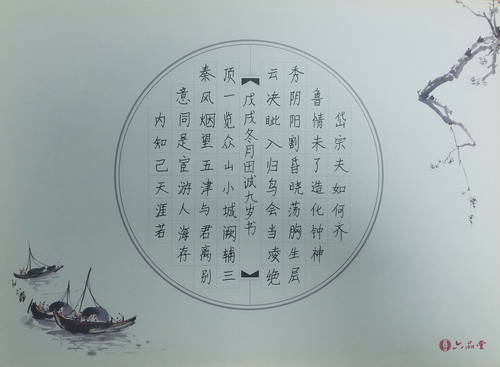 岱宗夫如何齐
鲁情未了造化钟神
秀阴阳割昏晓荡胸生层
云决眦入归鸟会当凌绝
戊戌冬月田诚九岁书
顶一览众山小城阙辅三
秦风烟望五津与君离别
意同是宦游人海存
内知己天涯若
六品堂